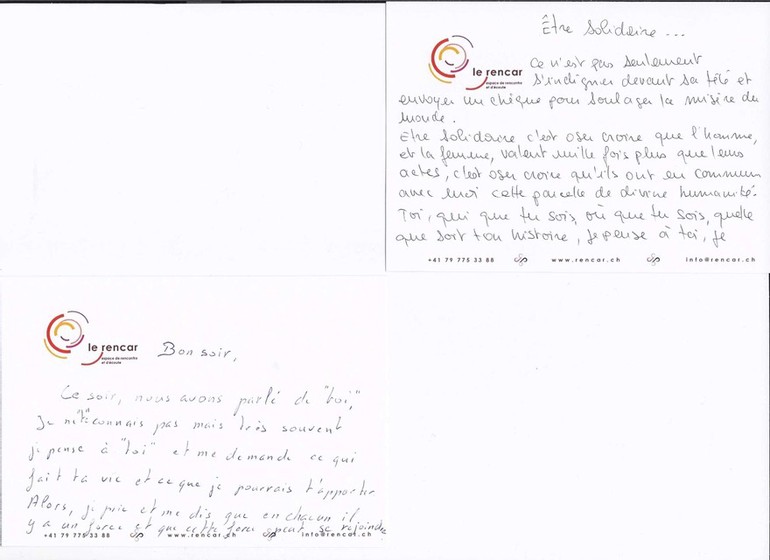 Être Solidaire ...
le rencar
espace de rencontre
et d'écoute
Ce n'est pas seulement
s'indigner devant sa télé et
envoyer un chèque pour soulager la misère du
monde.
Etre Solidaire c'est oser croire que l'homme,
et la femme, valent mille fois plus que leurs
actes, c'est oser croire qu'ils ont en commun
avec moi cette parcelle de divine humanité.
Toi, qui que tu sois, où que tu sois, quelle
que soit ton histoire, je pense à toi, je
+41 79 775 33 88 www.rencar.ch info@rencar.ch
le rencar
espace de rencontre
et d'écoute
Bonsoir,
Ce soir, nous avons parlé de "toi",
Je ne "te" connais pas mais très souvent
je pense à "toi" et me demande ce qui
fait ta vie et ce que je pourrais t'apporter
Alors, je prie et me dis que en chacun il
y a un force et que cette force peut se rejoindre
+41 79 775 33 88 www.rencar.ch info@rencar.ch